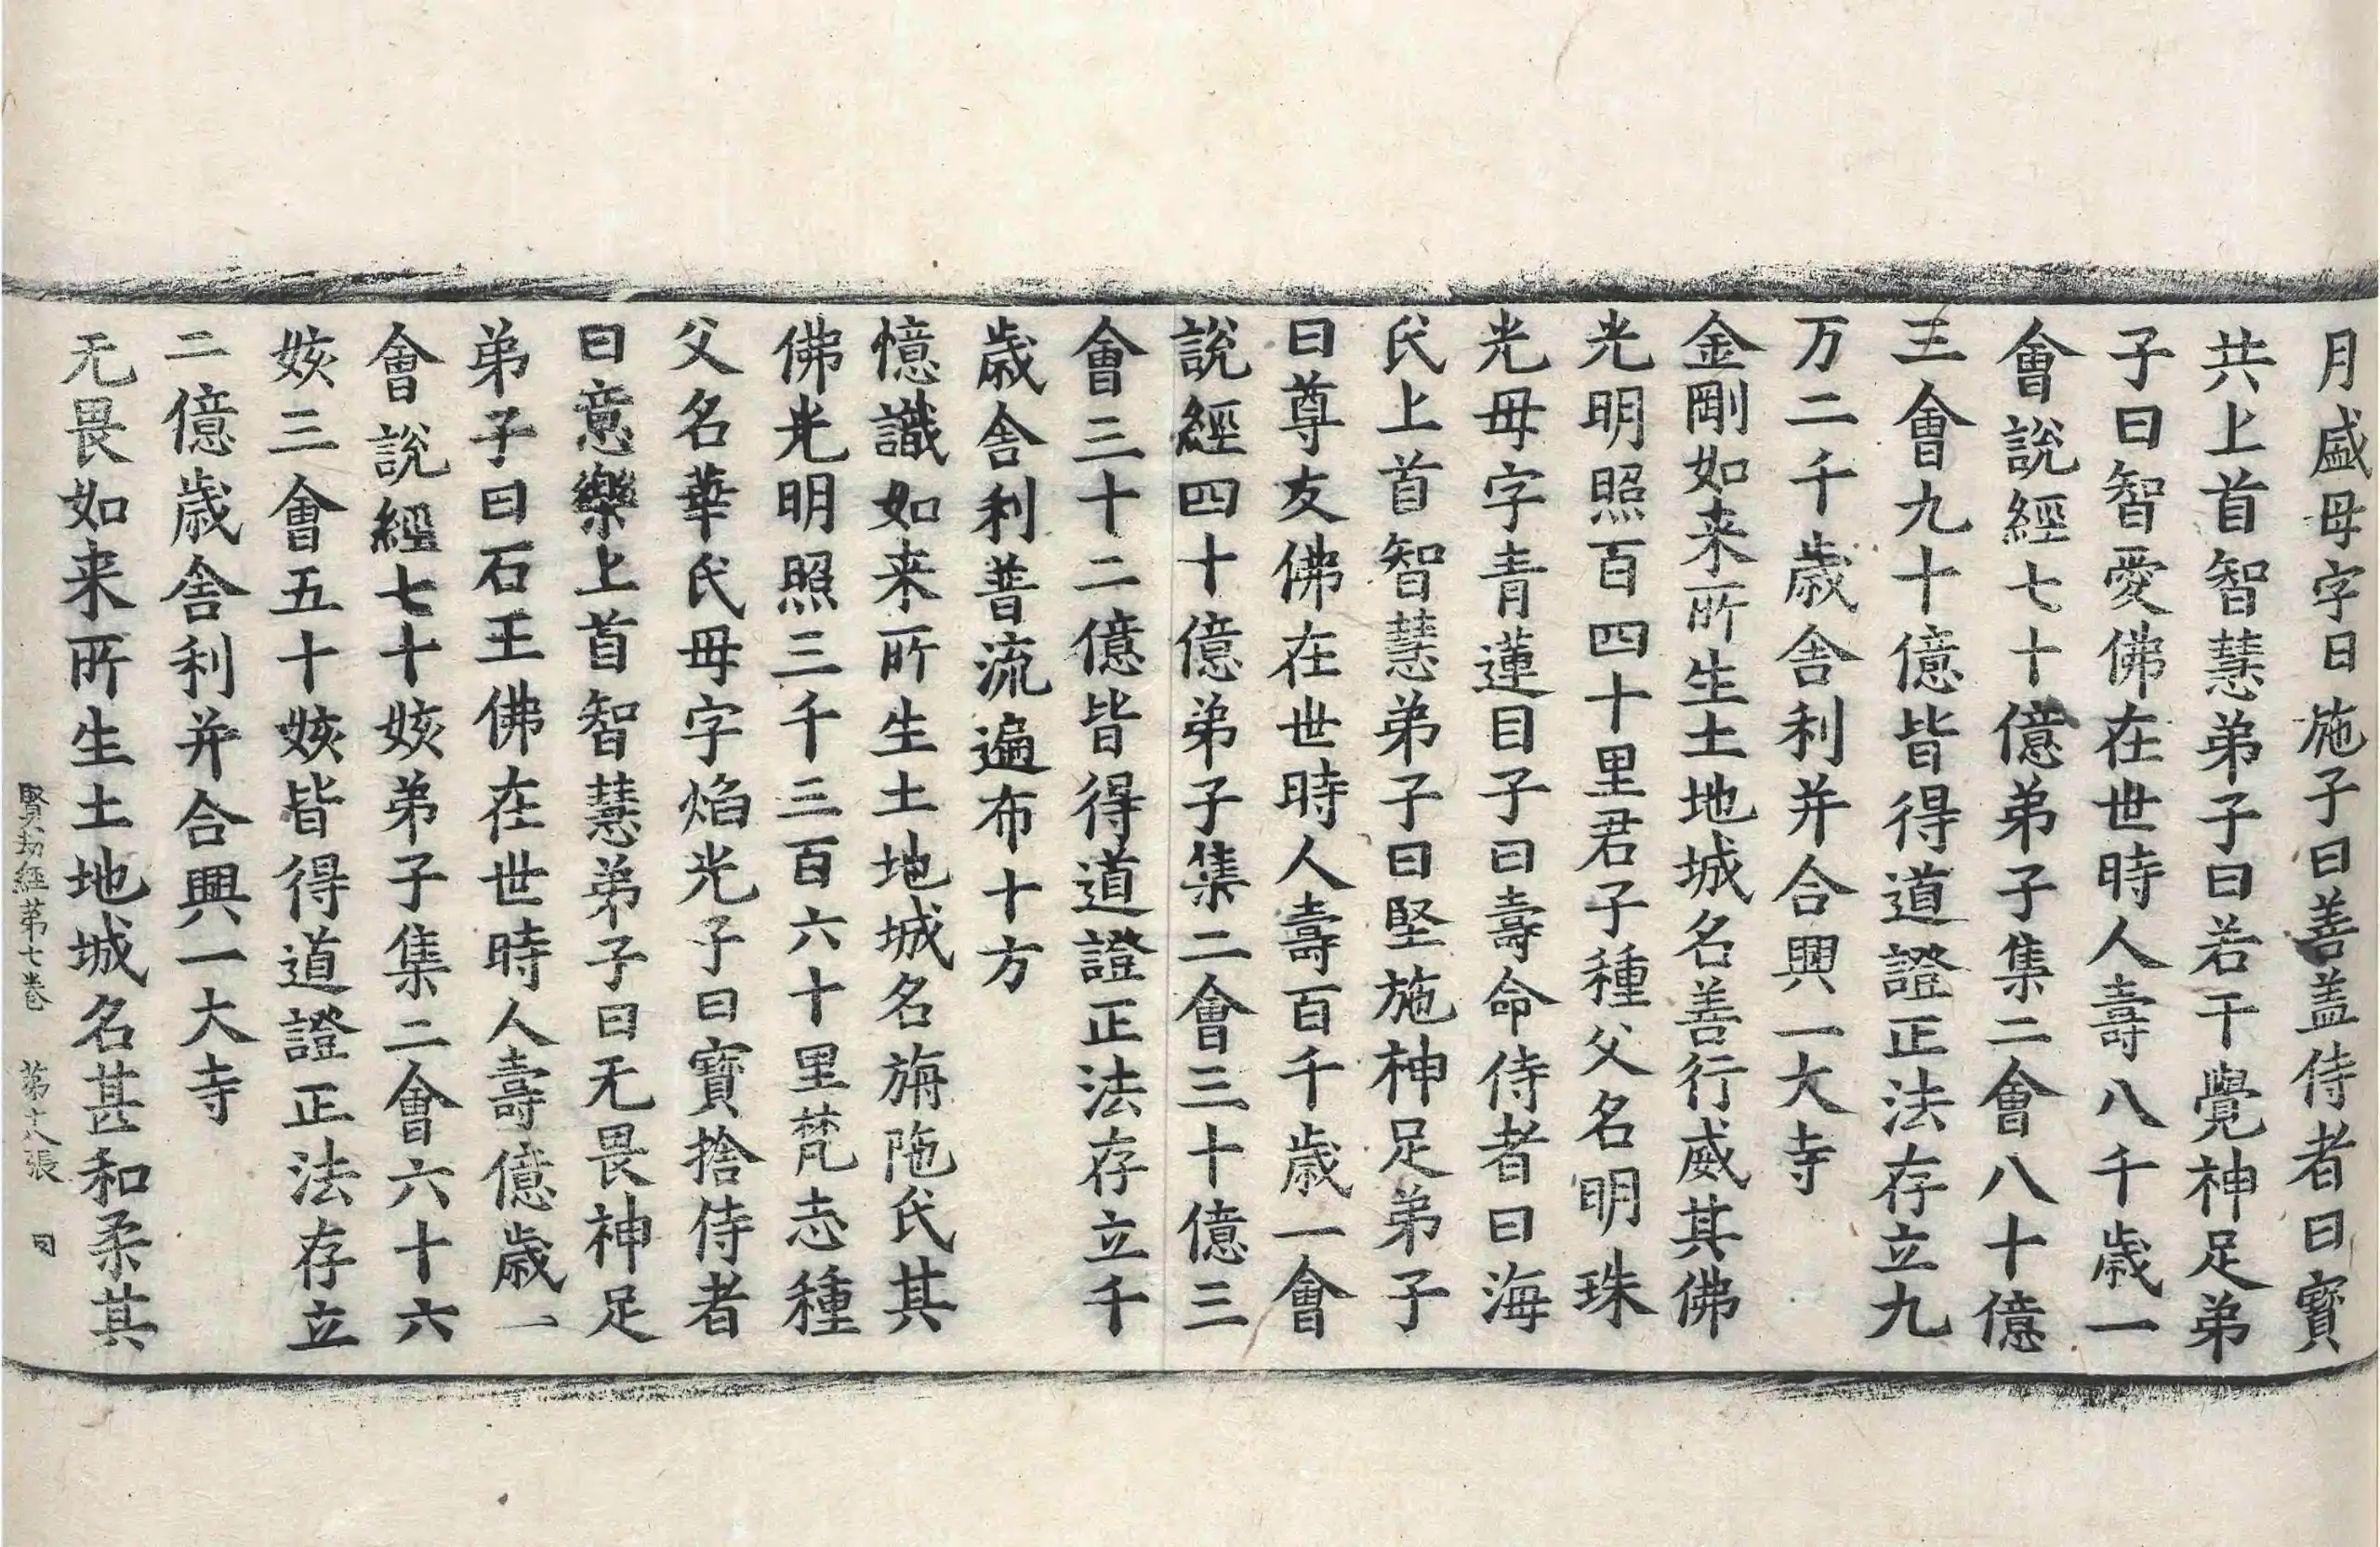 月盛母字日施子曰善盖侍者曰寳
共上首智慧弟子曰若干覺神足弟
子曰智愛佛在世時人壽八千歳一
會説經七十億弟子集二會八十億
三會九十億皆得道證正法存立九
万二千歳舎利并合興一大寺
金剛如来所生土地城名善行威其佛
光明照百四十里君子種父名明珠
光母字青蓮目子曰壽命侍者曰海
氏上首智慧弟子曰堅施神足弟子
曰尊友佛在世時人壽百千歳一會
説經四十億弟子集二會三十億三
會三十二億皆得道證正法存立千
歳舎利普流遍布十方
憶識如来所生土地城名旃陁氏其
佛光明照三千三百六十里梵志種
父名華氏母字焰光子曰寳捨侍者
曰意樂上首智慧弟子曰无畏神足
弟子曰石王佛在世時人壽億歳一
會説經七十姟弟子集二會六十六
姟三會五十姟皆得道證正法存立
二億歳舎利并合興一大寺
无畏如来所生土地城名甚和柔其
賢劫經第七巻 第十八張 同